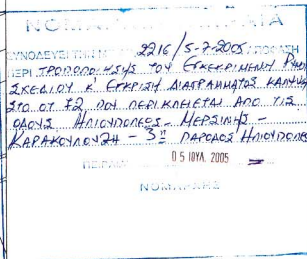 ΝΟΜΑΡΧΙΑ ΠΕΙΡΑΙΑ
ΣΥΝΟΔΕΥΕΙ ΤΗΝ 2216/5-7-2005 ΑΠΟΦΑΣΗ
ΠΕΡΙ ΤΡΟΠΟΠΟΙΗΣΗΣ ΤΟΥ ΕΓΚΕΚΡΙΜΕΝΟΥ
ΣΧΕΔΙΟΥ Κ' ΕΓΚΡΙΣΗ ΔΙΑΓΡΑΜΜΑΤΟΣ
ΣΤΟ ΟΤ 72 ΠΟΥ ΠΕΡΙΚΛΕΙΕΤΑΙ ΑΠΟ ΤΙΣ
ΟΔΟΥΣ ΗΛΙΟΥΠΟΛΕΩΣ - ΜΕΡΣΙΝΗΣ -
ΚΑΡΑΚΟΥΛΟΥΖΗ - 3η ΠΑΡΟΔΟΣ ΗΛΙΟΥΠΟΛΕΩΣ
05 ΙΟΥΛ. 2005
ΝΟΜΑΡΧΗΣ